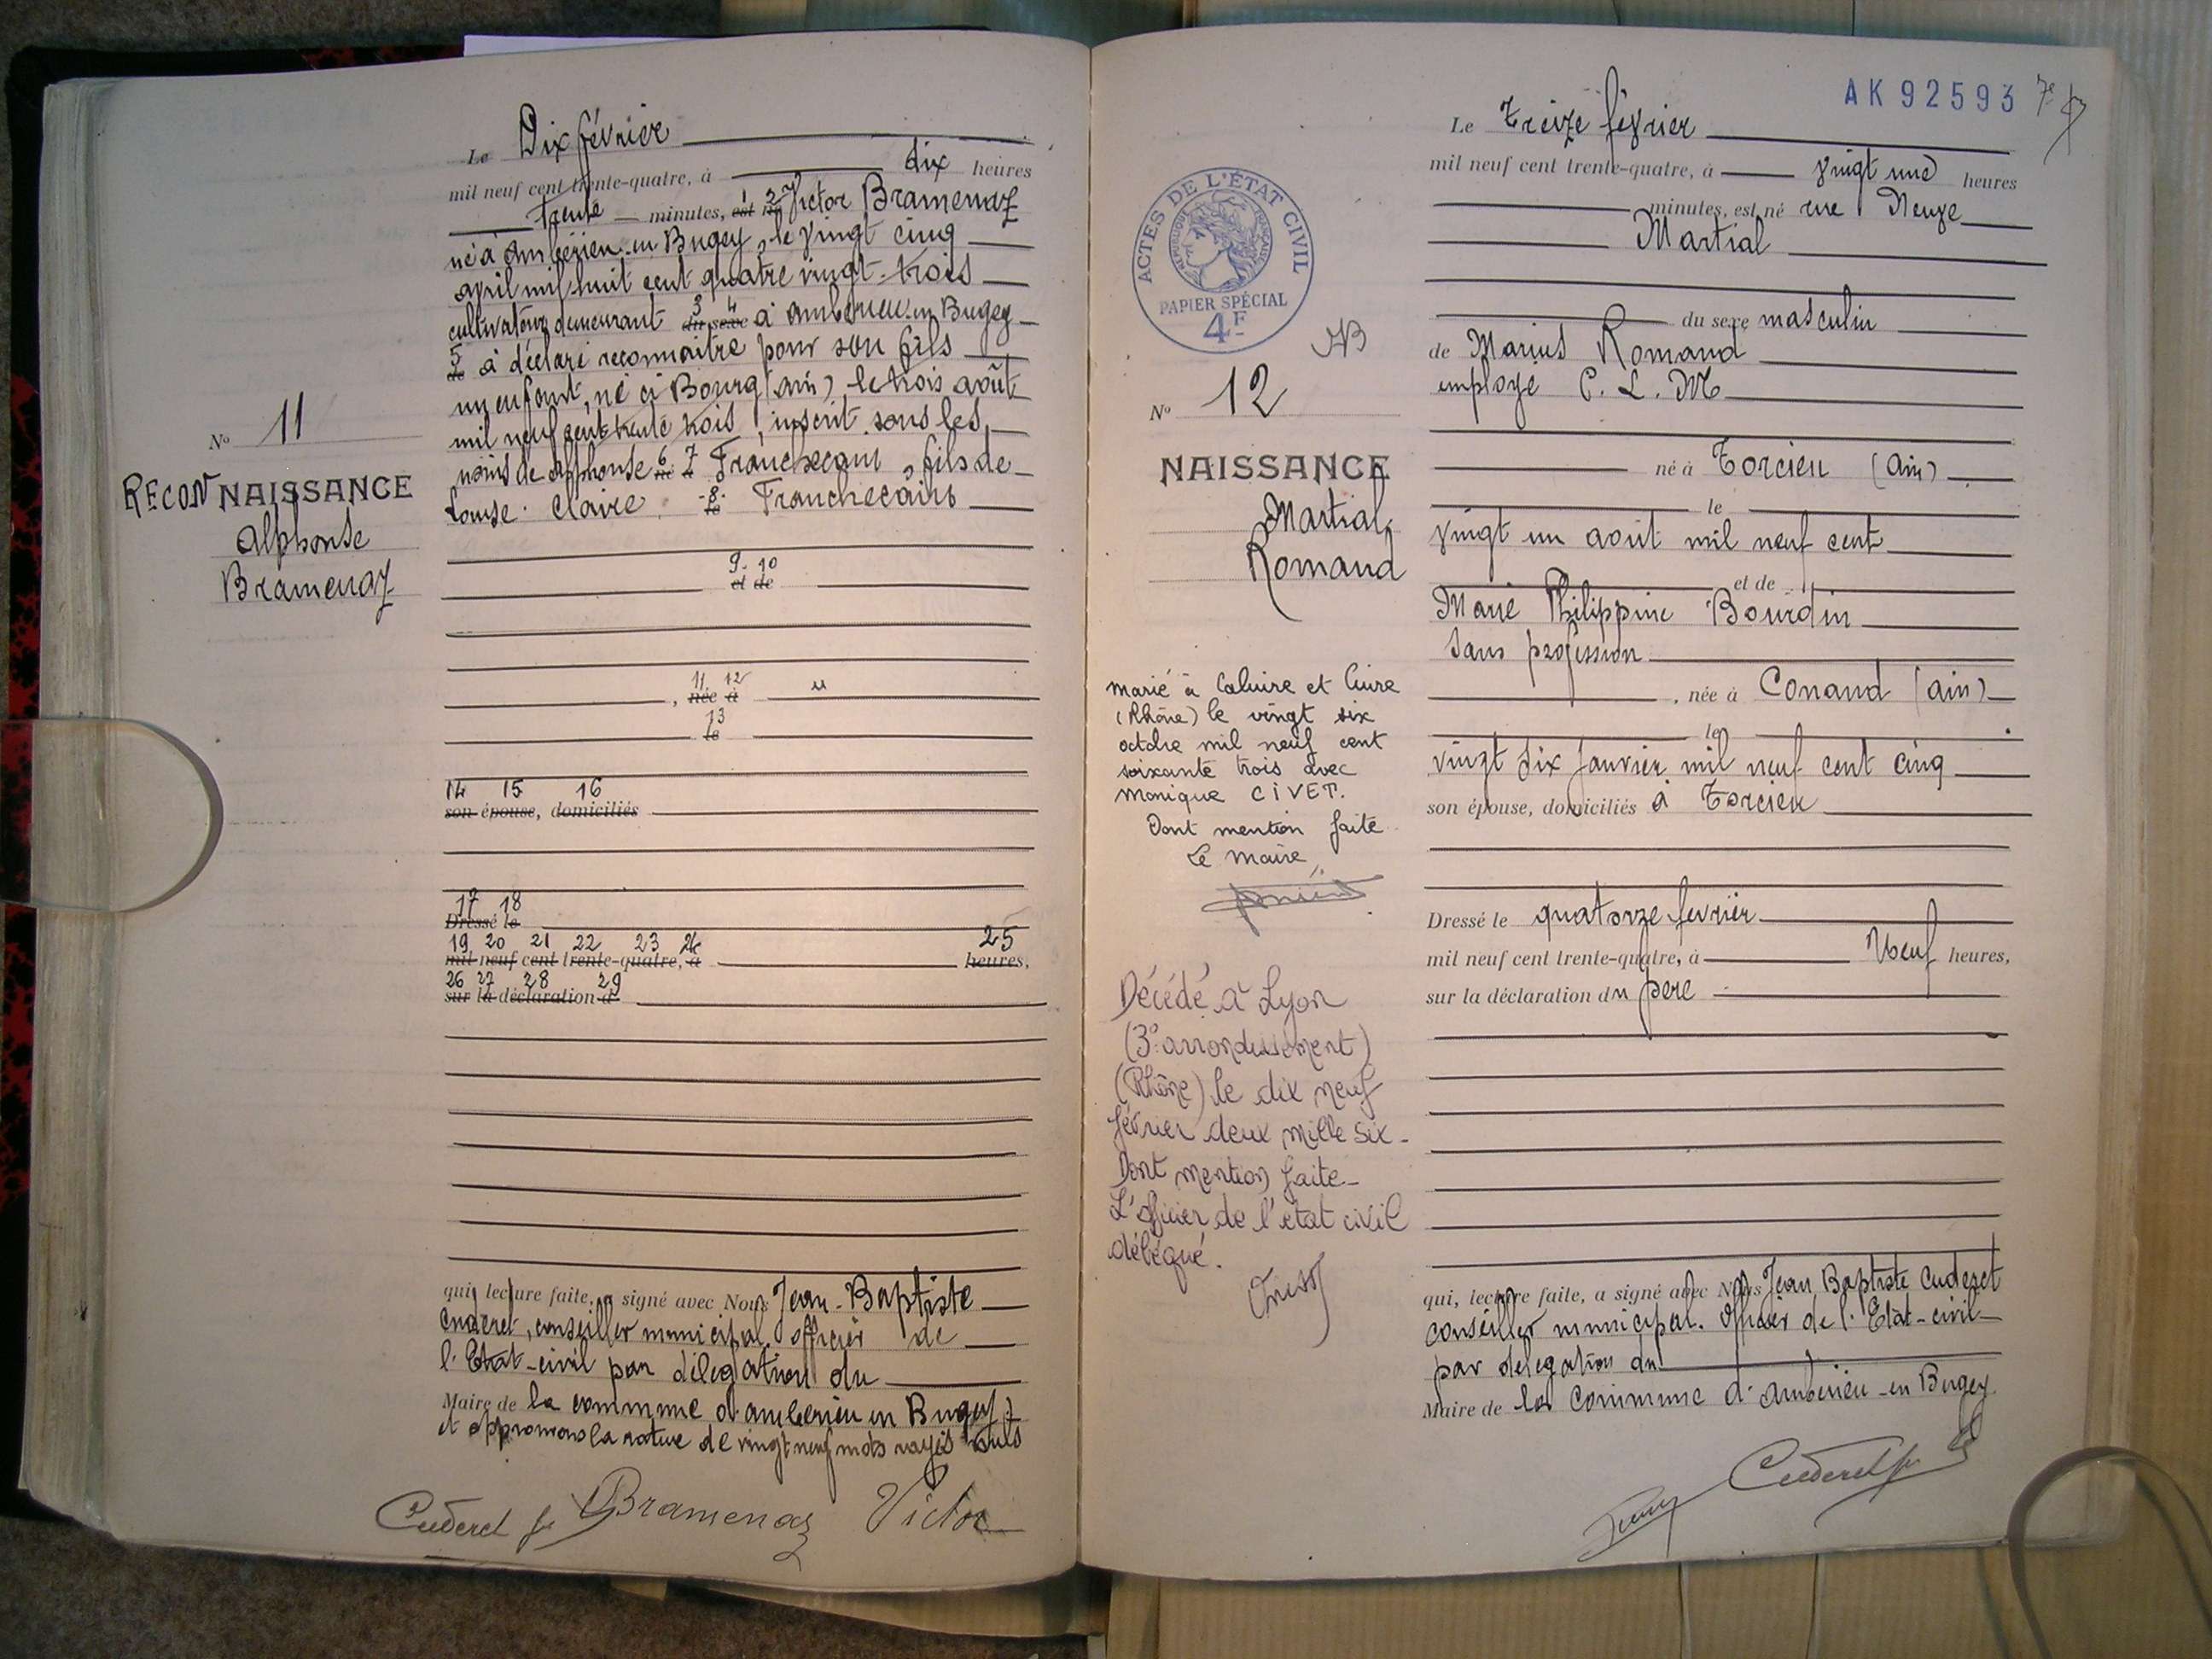 Le Dix février
mil neuf cent trente-quatre, à dix heures
trente minutes, est né Victor Bramenaz
né à Ambérieu en Bugey, le vingt cinq
avril mil huit cent quatre vingt-trois
cultivateur demeurant du sexe à Ambérieu en Bugey
de à déclaré reconnaitre pour son fils
un enfant, né à Bourg (Ain), le trois août
mil neuf cent trente trois, inscrit sous les
noms de Alphonse né à Franchecani, fils de
Louise Claire le Franchecani
9 10
et de
11 12
, née à
13
le
14 15 16
son épouse, domiciliés
17 18
Dressé le
19 20 21 22 23 24 25
mil neuf cent trente-quatre, à heures,
26 27 28 29
sur la déclaration d
qui, lecture faite, a signé avec Nous Jean-Baptiste
Cuderet, conseiller municipal, officier de
l'Etat-civil par délégation du
Maire de la commune d'Ambérieu en Bugey,
et approuvons la rature de vingt neuf mots rayés nuls
Cuderet Bramenaz Victor
N° 11
RECONNAISSANCE
Alphonse
Bramenaz
AK 92593
ACTES DE L'ÉTAT CIVIL
RÉPUBLIQUE FRANÇAISE
PAPIER SPÉCIAL
4F
N° 12
NAISSANCE
Martial
Romand
marié à Caluire et Cuire
(Rhône) le vingt six
octobre mil neuf cent
soixante trois avec
Monique CIVET.
Dont mention faite
Le Maire,
Décédé à Lyon
(3e arrondissement)
(Rhône) le dix neuf
février deux mille six.
Dont mention faite.
L'officier de l'état civil
délégué.
Le Treize février
mil neuf cent trente-quatre, à vingt une heures
minutes, est né rue Neuve
Martial
du sexe masculin
de Marius Romand
employé P. L. M
né à Torcieu (Ain)
le
vingt un août mil neuf cent
et de
Marie Philippine Bourdin
sans profession
, née à Conand (Ain)
le
vingt six janvier mil neuf cent cinq
son épouse, domiciliés à Torcieu
Dressé le quatorze février
mil neuf cent trente-quatre, à Neuf heures,
sur la déclaration du père
qui, lecture faite, a signé avec Nous Jean Baptiste Cuderet
conseiller municipal. Officier de l'Etat-civil
par délégation du
Maire de la commune d'Ambérieu-en Bugey
Cuderet